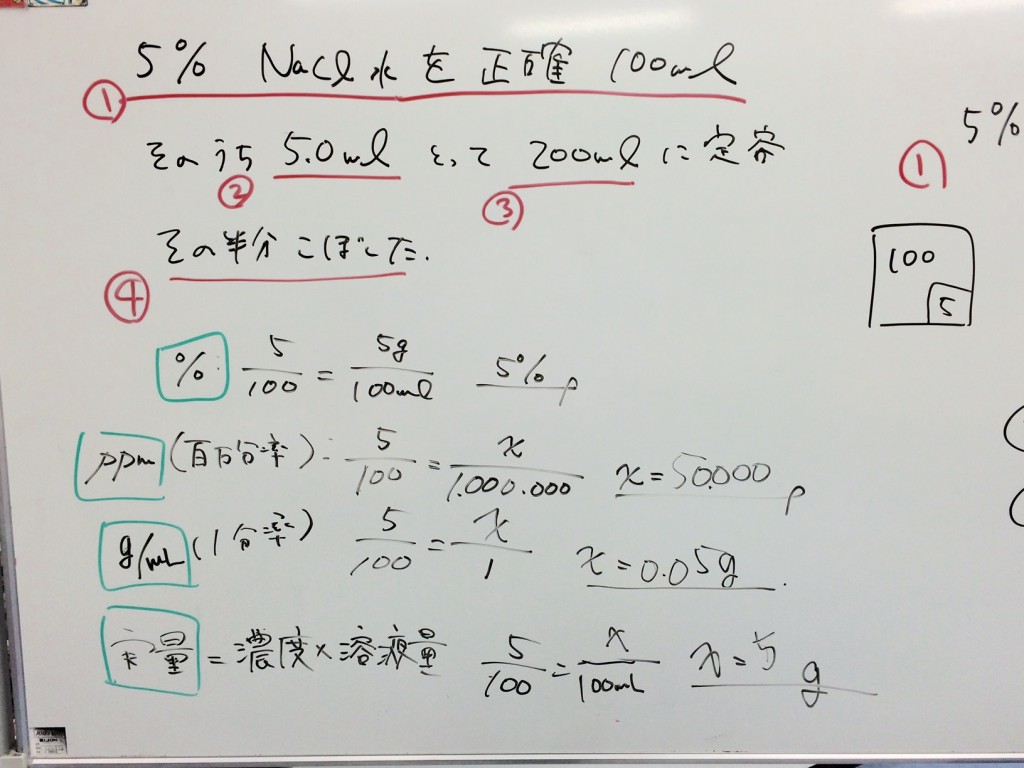 5% NaCl水を正確 100ml
①
そのうち 5.0ml とって 200mlに定容
② ③
その半分こぼした.
④
%: 5/100 = 5g/100ml 5%
ppm (百万分率): 5/100 = x/1.000.000 x=50.000
g/mL (1分率) 5/100 = x/1 x=0.05g.
量 = 濃度×溶液量 5/100 = x/100mL x=5g
5%
①
100
5